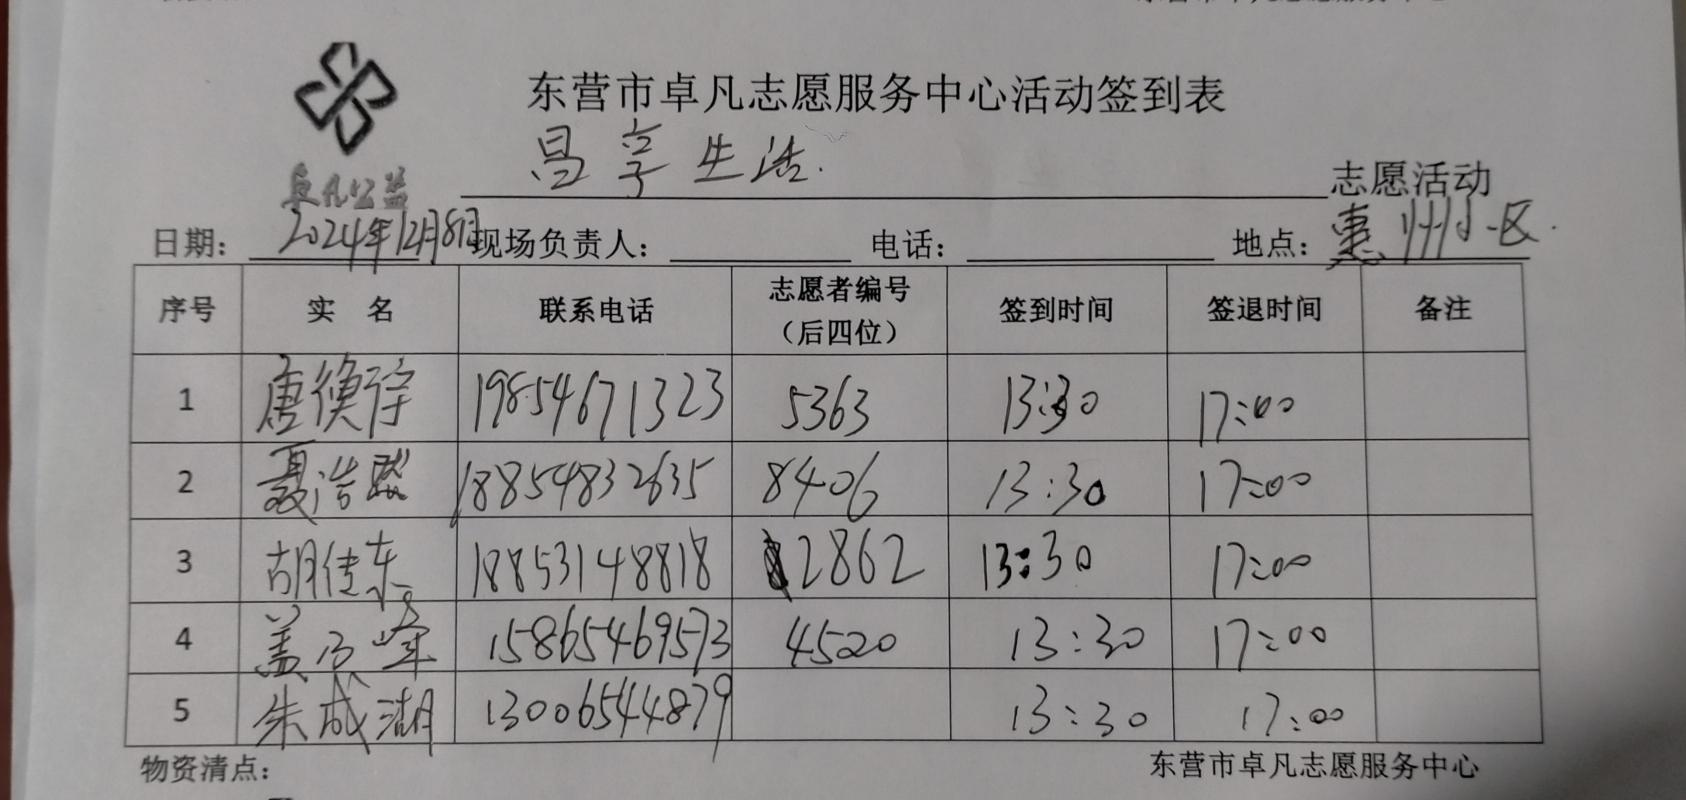 东营市卓凡志愿服务中心活动签到表
昌享生活. 志愿活动
卓凡公益
日期：2024年12月8日 现场负责人： 电话： 地点：惠州小区.
序号 实 名 联系电话 志愿者编号（后四位） 签到时间 签退时间 备注
1 唐 19854671323 5363 13:30 17:00
2 聂浩 18854832635 8406 13:30 17:00
3 胡佳东 18853148818 2862 13:30 17:00
4 盖乃峰 15865469573 4520 13:30 17:00
5 朱成湖 13006544879 13:30 17:00
物资清点： 东营市卓凡志愿服务中心